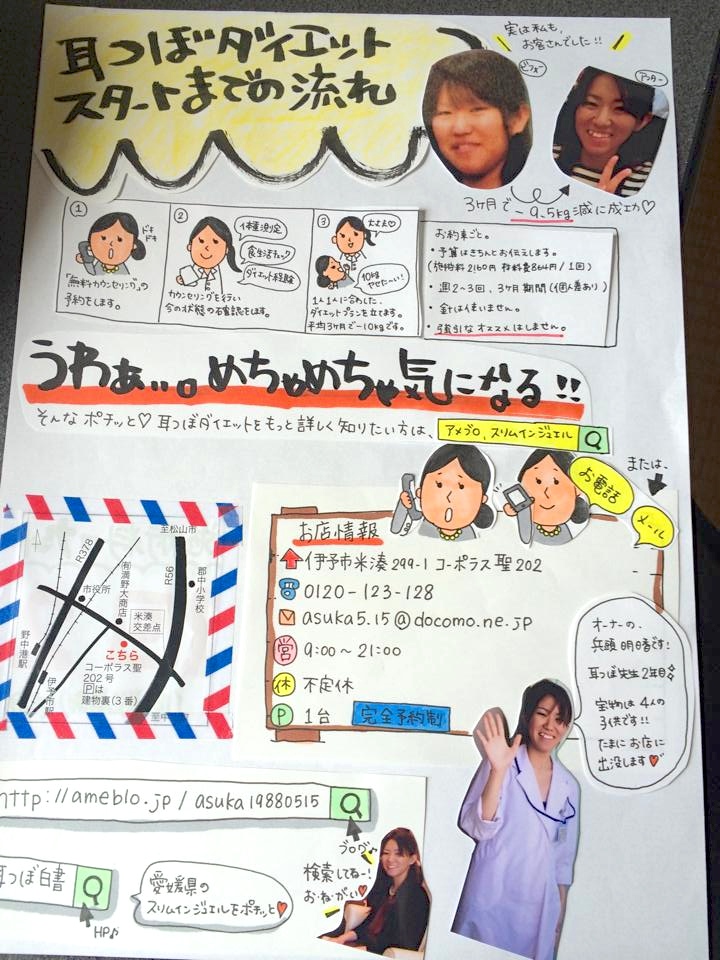 耳つぼダイエット
スタートまでの流れ
実は私も、
お客さんでした!!
ビフォー
アフター
3ヶ月で-9.5kg減に成功♡
①
ドキ
ドキ
「無料カウンセリング」の
予約をします。
②
体重測定
食生活チェック
ダイエット経験
カウンセリングを行い
今の状態の確認をします。
③
大丈夫♡
10kg
やせたーい!
1人1人に合わした、
ダイエットプランを立てます。
平均3ヶ月で-10kgです。
お約束ごと。
・予算はきちんとお伝えします。
(施術料2160円 材料費864円/1回)
・週2~3回、3ヶ月期間(個人差あり)
・金は使いません。
・強引なオススメはしません。
うわぁ…。めちゃめちゃ気になる!!
そんなポチッと♡耳つぼダイエットをもっと詳しく知りたい方は、
アメブロ、スリムインジュエル
または、
お電話
メール
至松山市
R378
R56
市役所
(有)満野大商店
米湊
交差点
郡中小学校
こちら
コーポラス聖
202号
Pは
建物裏(3番)
野中港駅
伊予市駅
お店情報
伊予市米湊299-1 コーポラス聖202
0120-123-128
asuka5.15@docomo.ne.jp
営 9:00~21:00
休 不定休
P 1台 完全予約制
オーナーの、
兵頭明日香です!
耳つぼ先生2年目
宝物は4人の
子供です!!
たまにお店に
出没します♥
http://ameblo.jp/asuka19880515
ブログ♪
検索してねー!
お・ね・がい♥
耳つぼ白書
HP♪
愛媛県の
スリムインジュエルをポチッと♥